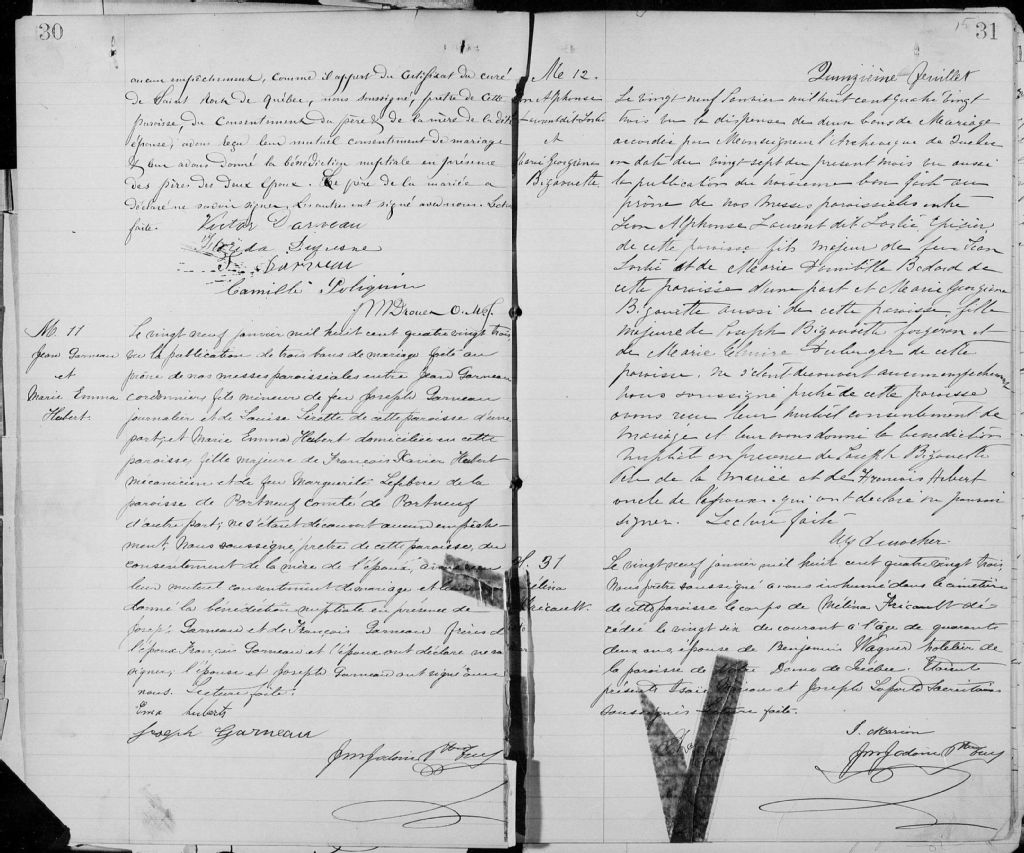 30
aucun empêchement, comme il appert du certificat du curé
de Saint Roch de Québec, nous soussigné, prêtre de cette
paroisse, du consentement du père & de la mère de la dite
épouse, avons reçu leur mutuel consentement de mariage
& leur avons donné la bénédiction nuptiale en présence
des pères des deux époux. Le père de la mariée a
déclaré ne savoir signer. Les autres ont signé avec nous. Lecture
faite.
Victor Darveau
Dufresne
F. Darveau
Camille Poliquin
M 11
Jean Garneau
et
Marie Emma
Hebert
Le vingt neuf janvier mil huit cent quatre vingt trois
vu la publication de trois bans de mariage faite au
prône de nos messes paroissiales entre Jean Garneau
cordonnier, fils mineur de feu Joseph Garneau
journalier et de Louise de cette paroisse d'une
part, et Marie Emma Hebert domiciliée en cette
paroisse, fille majeure de François Xavier Hebert
mécanicien et de feu Marguerite Lefebvre de la
paroisse de Portneuf comté de Portneuf
d'autre part; ne s'étant découvert aucun empêche-
ment; Nous soussigné, prêtre de cette paroisse, du
consentement de la mère de l'époux, avons reçu
leur mutuel consentement de mariage et leur
donné la bénédiction nuptiale en présence de
Joseph Garneau et de François Garneau frères de
l'époux François Garneau et l'époux ont déclaré ne savoir
signer, l'épouse et Joseph Garneau ont signé avec
nous. Lecture faite.
Ema huberts
Joseph Garneau
31
15
Quinzième feuillet
Me 12.
Alphonse
Laurent dit Lortie
et
Marie Georgiena
Bigaouette
Le vingt neuf Janvier mil huit cent quatre vingt
trois vu la dispense de deux bans de Mariage
accordée par Monseigneur l'Archevêque de Québec
en date du vingt sept du present mois vu aussi
la publication du troisième ban faite au
prône de nos messes paroissiales entre
Léon Alphonse Laurent dit Lortie Epicier
de cette paroisse fils majeur de feu Jean
Lortie et de Marie Domitille Bedard de
cette paroisse d'une part et Marie Georgiena
Bigaouette aussi de cette paroisse, fille
majeure de Joseph Bigaouette forgeron et
de Marie Elmire Duberger de cette
paroisse. Ne s'étant découvert aucun empêchement
Nous soussigné prêtre de cette paroisse
avons reçu leur mutuel consentement de
mariage et leur avons donné la bénédiction
nuptiale en présence de Joseph Bigaouette
Père de la mariée et de François Hebert
oncle de l'époux qui ont déclaré ne pouvoir
signer. Lecture faite
S. 31
Mélina
Fricault
Le vingt neuf janvier mil huit cent quatre vingt trois
Nous prêtre soussigné avons inhumé dans le cimetière
de cette paroisse le corps de Mélina Fricault dé-
cédée le vingt six du courant à l'âge de quarante
deux ans, épouse de Benjamin Wagner hotelier de
la paroisse de Notre Dame de Québec. Etaient
présents et Joseph Laforte sacristain
soussignés Lecture faite.